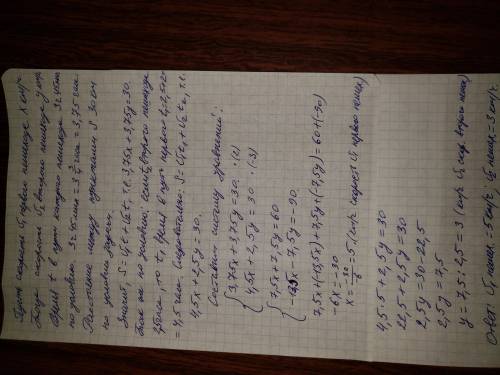 Пусть скорость v₁ первого пешехода x км/ч.
Тогда скорость v₂ второго пешехода y км/ч
Время t в пути каждого пешехода 3ч 45мин
по условию. 3ч 45 мин = 3 3/4 часа = 3,75 часа.
Расстояние между пунктами S 30 км
по условию задачи.
Значит, S = v₁t + v₂t, т.е. 3,75x + 3,75y = 30.
Так же по условию: если v₂ второго пешехода
t₂ = 2,5
= 4,5 часа. Следовательно: S = v₁t₁ + v₂t₂, т.е.
4,5x + 2,5y = 30.
Составим систему уравнений:
{ 3,75x + 3,75y = 30 · (2)
4,5x + 2,5y = 30 · (-3)
{ 7,5x + 7,5y = 60
-13,5x - 7,5y = -90.
7,5x + (-13,5x) + 7,5y + (-7,5y) = 60 + (-90)
-6x = -30
x = -30/-6 = 5 (км/ч скорость v₁ первого пешех)
4,5 · 5 + 2,5y = 30
22,5 + 2,5y = 30
2,5y = 30 - 22,5
2,5y = 7,5
y = 7,5 : 2,5 = 3 (км/ч v₂ второго пешех)
Ответ: v₁ пешех = 5 км/ч; v₂ пешех = 3 км/ч.